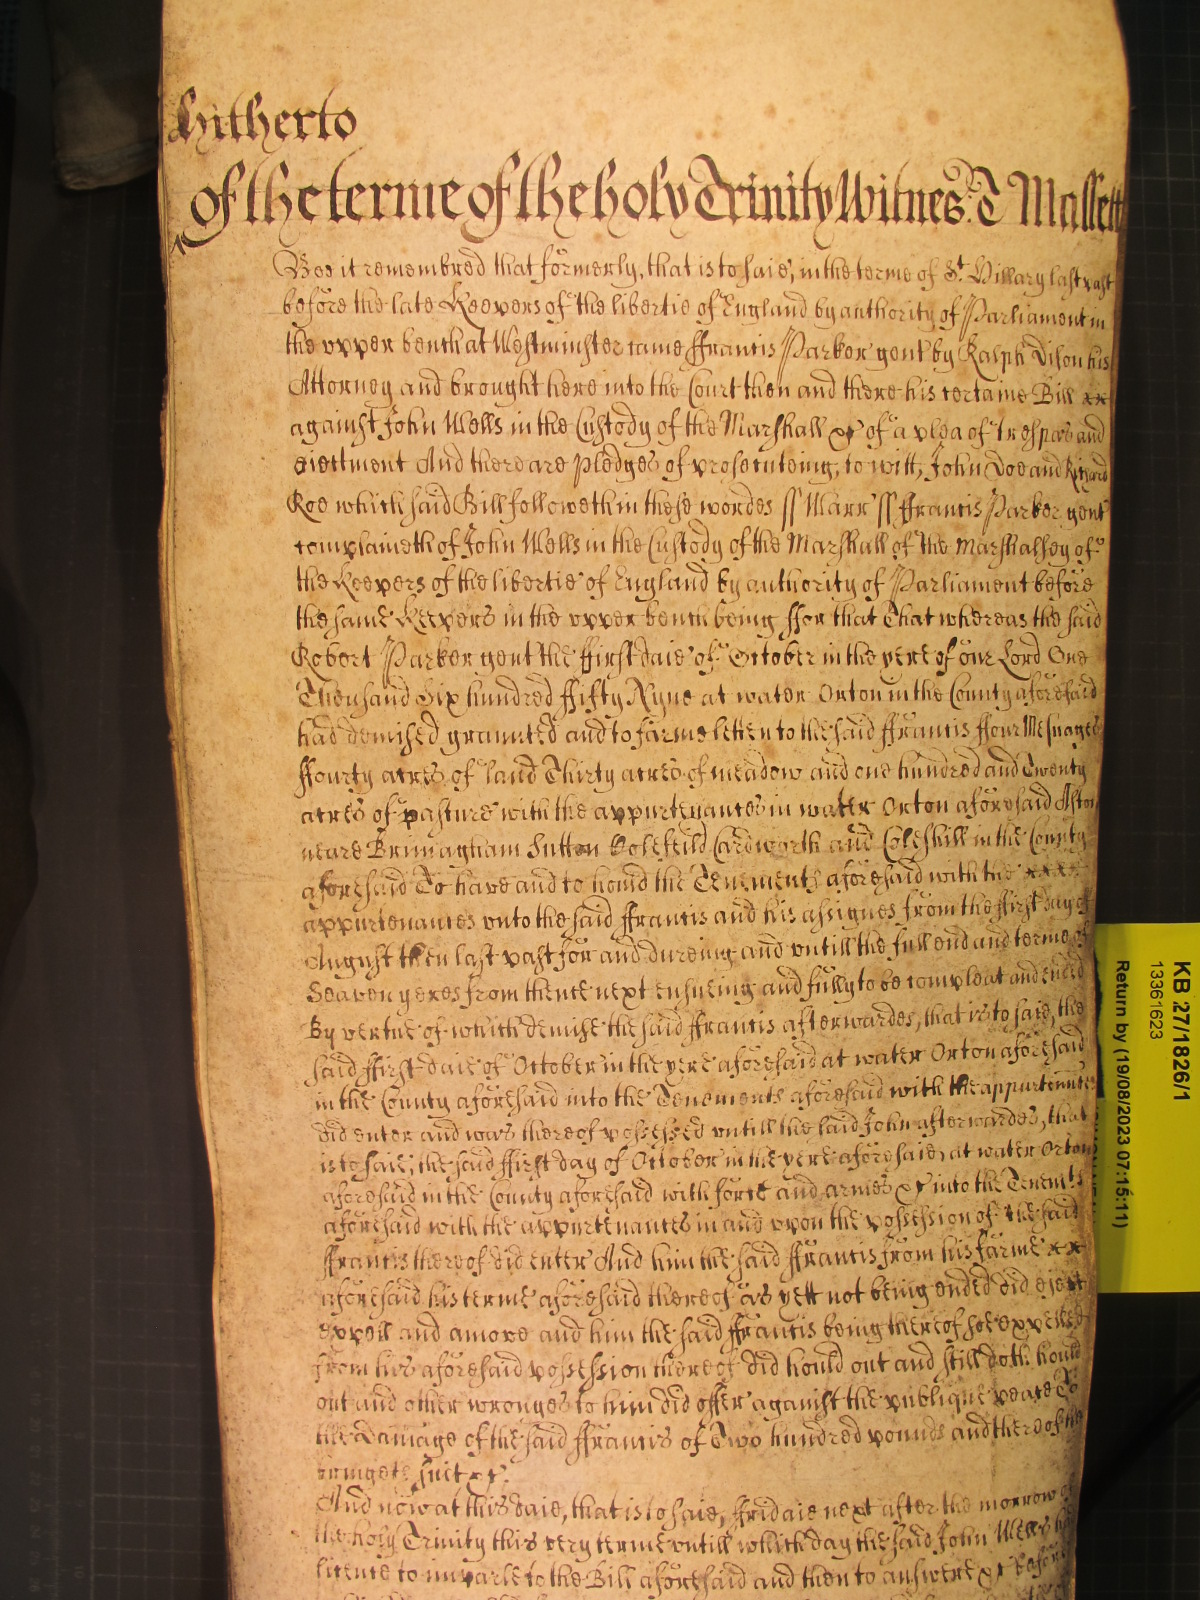 Hitherto
of the terme of the holy Trinity Witnes: T Mallett
Bee it remembred that formerly, that is to saie, in the terme of St. Hillary last past
before the late Keepers of the libertie of England by authority of Parliament in
the upper bench at Westminster came ffrancis Parker gent by Ralph Dison his
Attorney and brought here into the Court then and there his certaine Bill xx
against John Wells in the Custody of the Marshall &c of a plea of trespas and
eiectment And there are pledges of prosecuteing, to witt, John Doe and Richard
Roe which said Bill followeth in these wordes ss Warr ss ffrancis Parker gent
complaineth of John Wells in the Custody of the Marshall of the Marshalsey of
the Keepers of the libertie of England by authority of Parliament before
the same Keepers in the upper bench being ffor that That whereas the said
Robert Parker gent the ffirst daie of October in the yere of our Lord One
Thousand Six hundred ffifty Nyne at water Orton in the County aforesaid
had demised graunted and to farme letten to the said ffrancis ffour Mesuages
ffourty acres of land Thirty acres of meadow and one hundred and Twenty
acres of pasture with the appurtenances in water Orton aforesaid Aston
neare Brimagham Sutton Colefeild Curdworth and Coleshill in the County
aforesaid To have and to hould the Tenements aforesaid with the xxxx
appurtenances unto the said ffrancis and his assignes from the ffirst day of
August then last past for and dureing and untill the full end and terme of
Seaven yeres from thence next ensueing and fully to be compleat and ended
By vertue of which demise the said ffrancis afterwardes, that is to saie, the
said ffirst daie of October in the yere aforesaid at water Orton aforesaid
in the County aforesaid into the Tenements aforesaid with the appurtennces
did enter and was thereof possessed untill the said John afterwardes, that
is to saie, the said ffirst day of October in the yere aforesaid, at water Orton
aforesaid in the County aforesaid with force and armes &c into the Tenemts
aforesaid with the appurtenances in and upon the possession of the said
ffrancis thereof did enter And him the said ffrancis from his farme xx
aforesaid his terme aforesaid thereof as yett not being ended did eject
expell and amove and him the said ffrancis being thereof soe expelled
from his aforesaid possession thereof did hould out and still doth hould
out and other wronges to him did offer against the publique peace To
the damage of the said ffrancis of Two hundred pounds and thereof he
bringeth suit &c.
And now at this daie, that is to saie, ffridaie next after the morrow of
the holy Trinity this very terme untill which day the said John Wells had
licence to imparle to the Bill aforesaid and then to answere &c before
KB 27/1826/1
13361623
Return by (19/08/2023 07:15:11)